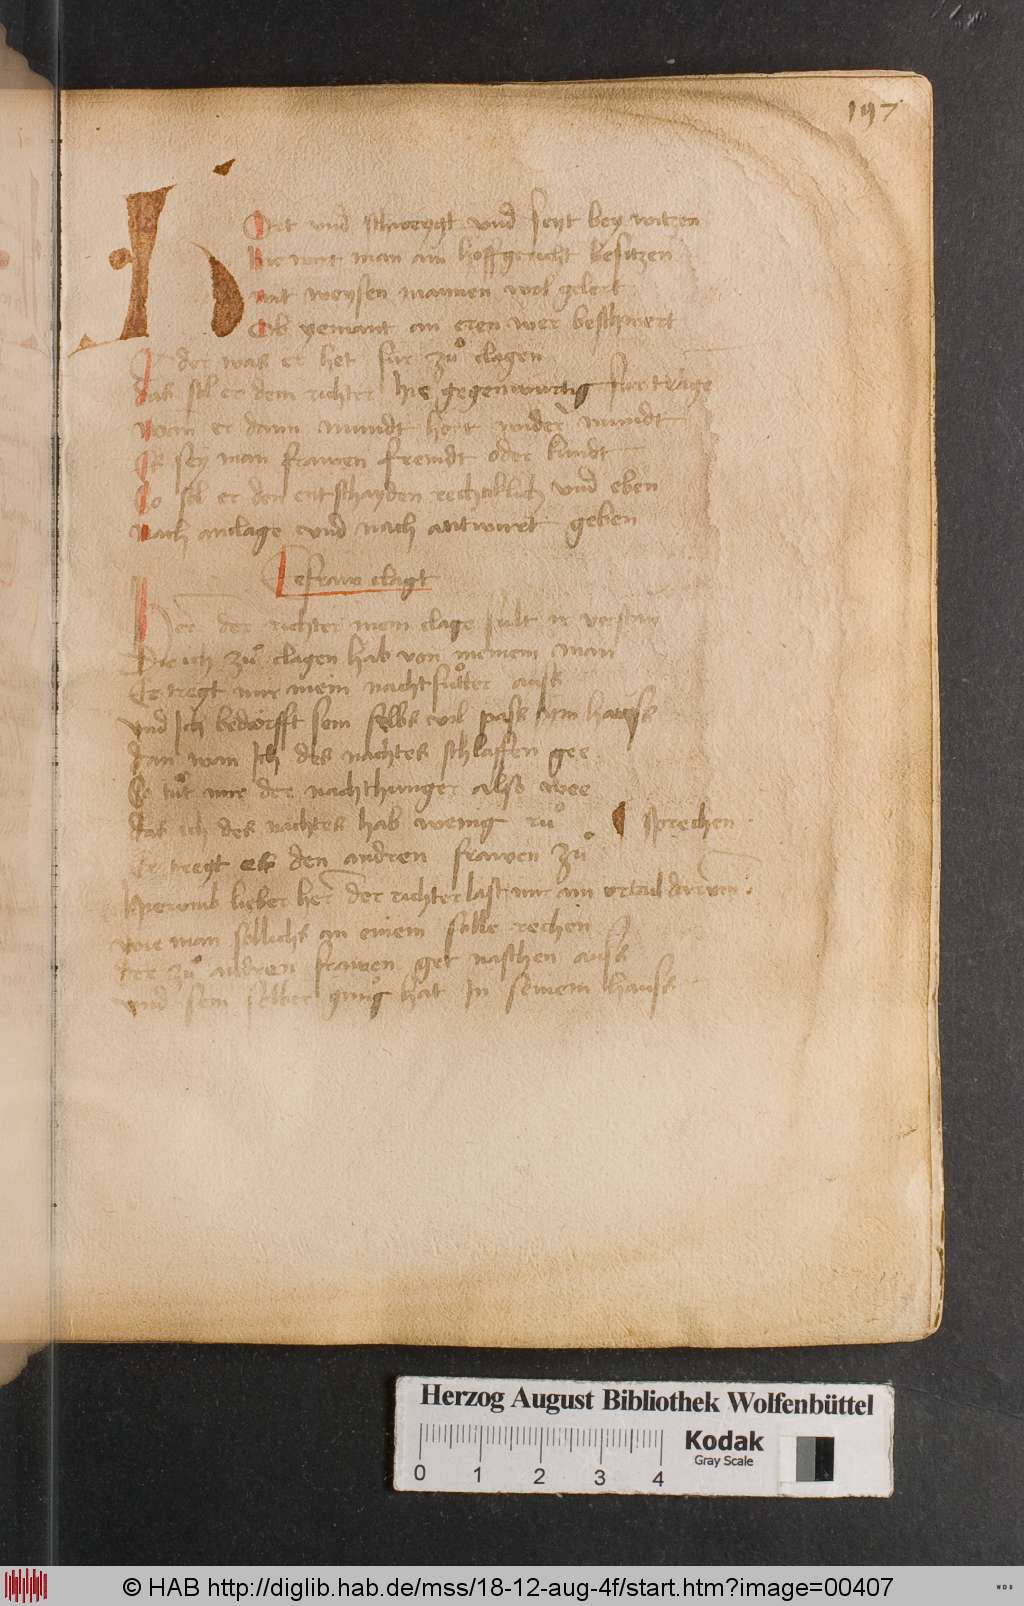 197
Ort und schweygt und seyt bey witzen
hie wirt man ain hoffgericht besitzen
mit weysen mannen wol gelert
Ob yemant an eren wer beschwert
der was er het für zů clagen
das sol er dem richter hie gegenwurtig fürtrage
wann er dann mundt hort wider mundt
Es sey man frawen fremdt oder kundt
So sol er den entschayden rechtlich und eben
Nach anclage und nach antwurt geben
e fraw clagt
Her der richter mein clage sült ir verstan
Die ich zů clagen hab von meinem man
Er tregt mir mein nachtfůtter auss
und Ich bedörfft sein selbs wil pass ym hawss
dan wan Ich des nachtes schlaffen gee
So tůt mir der nachthunger also wee
das ich des nachtes hab wenig rů
Er tregt es den andren frawen zů
sprechen
herumb lieber her der richter last mir ain urtail darumb
wie man sollichs an einem solle rechen
der zů andren frawen get naschen auss
und sein selber gnůg hat in seinem hauss
Herzog August Bibliothek Wolfenbüttel
0 1 2 3 4
Kodak
Gray Scale
© HAB http://diglib.hab.de/mss/18-12-aug-4f/start.htm?image=00407